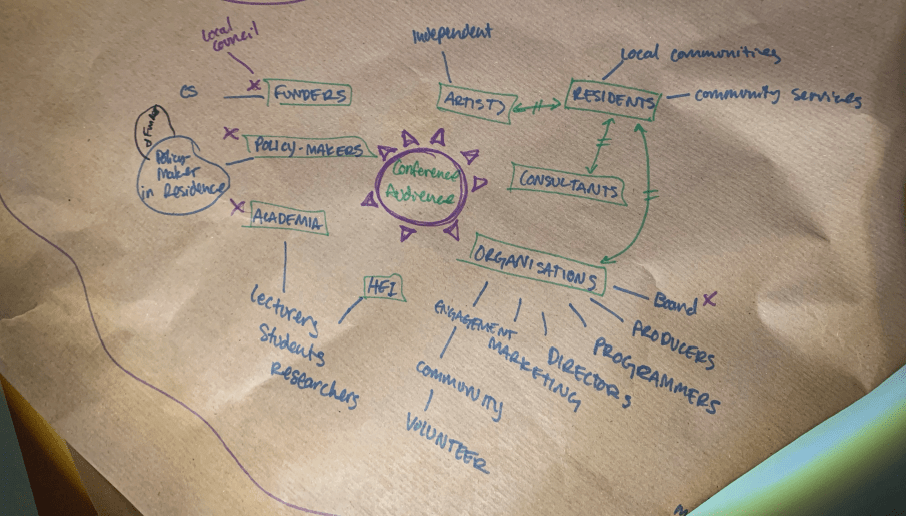 Local
Council
CS
FUNDERS
Policy-
Maker
in Residence
POLICY-MAKERS
ACADEMIA
Lecturers
Students
Researchers
HEI
Conference
Audience
Independent
ARTISTS
RESIDENTS
Local communities
community services
CONSULTANTS
ORGANISATIONS
ENGAGEMENT
COMMUNITY
VOLUNTEER
MARKETING
DIRECTORS
PROGRAMMERS
PRODUCERS
Board